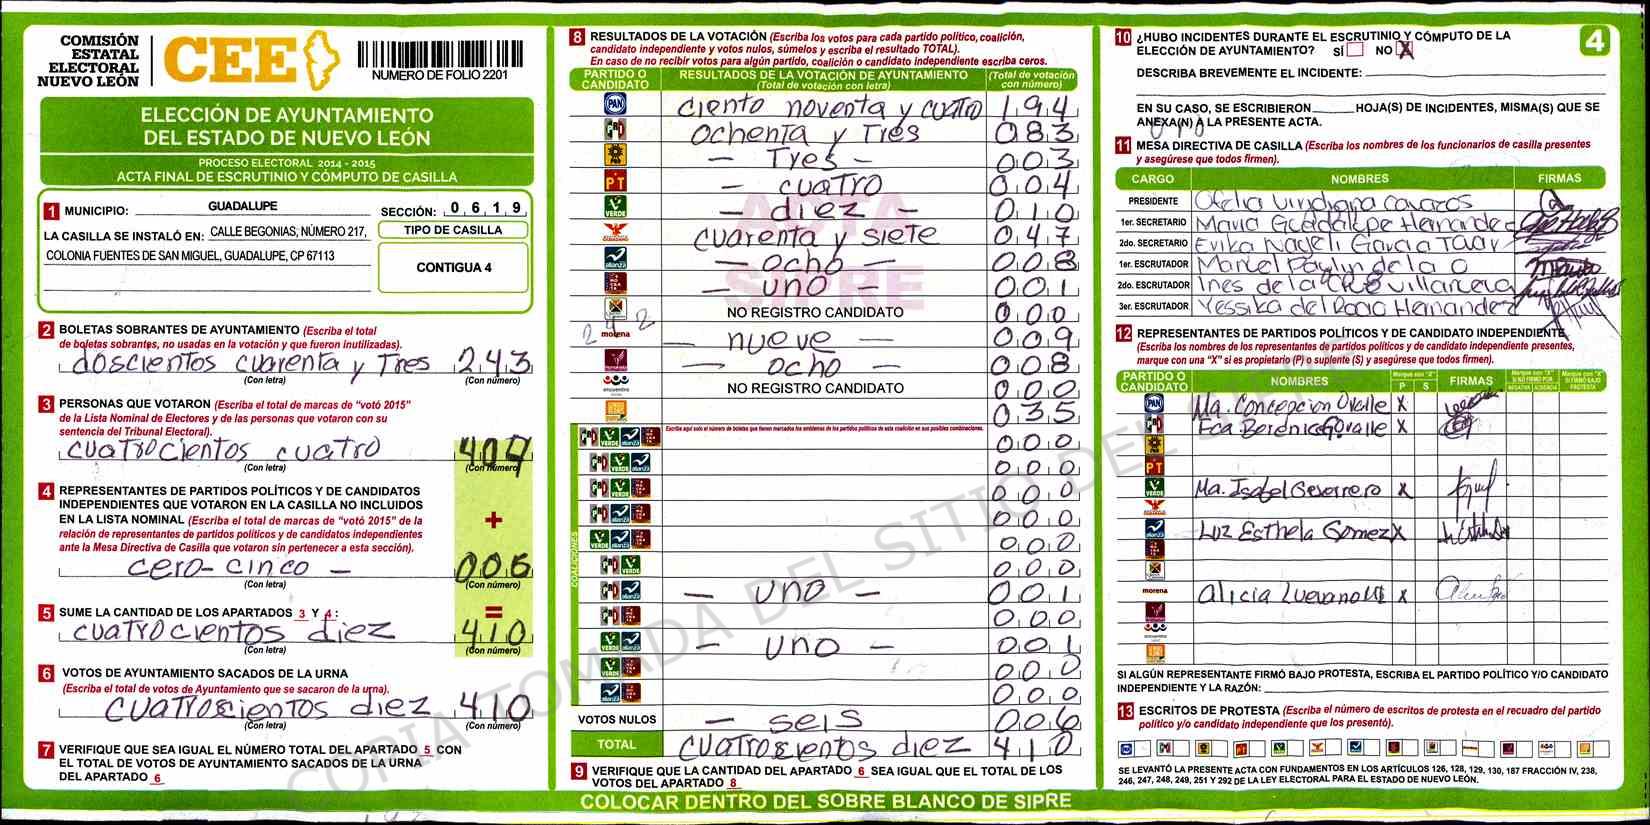 COMISIÓN
ESTATAL
ELECTORAL
NUEVO LEÓN
CEE
NUMERO DE FOLIO 2201
ELECCIÓN DE AYUNTAMIENTO
DEL ESTADO DE NUEVO LEÓN
PROCESO ELECTORAL 2014 - 2015
ACTA FINAL DE ESCRUTINIO Y CÓMPUTO DE CASILLA
1 MUNICIPIO: GUADALUPE
SECCIÓN: 0 6 1 9
LA CASILLA SE INSTALÓ EN: CALLE BEGONIAS, NÚMERO 217,
COLONIA FUENTES DE SAN MIGUEL, GUADALUPE, CP 67113
TIPO DE CASILLA
CONTIGUA 4
2 BOLETAS SOBRANTES DE AYUNTAMIENTO (Escriba el total
de boletas sobrantes, no usadas en la votación y que fueron inutilizadas).
doscientos cuarenta y Tres 243
(Con letra) (Con número)
3 PERSONAS QUE VOTARON (Escriba el total de marcas de "votó 2015"
de la Lista Nominal de Electores y de las personas que votaron con su
sentencia del Tribunal Electoral).
cuatrocientos cuatro
(Con letra) (Con número)
4 REPRESENTANTES DE PARTIDOS POLÍTICOS Y DE CANDIDATOS
INDEPENDIENTES QUE VOTARON EN LA CASILLA NO INCLUIDOS
EN LA LISTA NOMINAL (Escriba el total de marcas de "votó 2015" de la
relación de representantes de partidos políticos y de candidatos independientes
ante la Mesa Directiva de Casilla que votaron sin pertenecer a esta sección).
+
cero - cinco -
(Con letra) (Con número)
5 SUME LA CANTIDAD DE LOS APARTADOS 3 Y 4:
=
cuatrocientos diez 410
(Con letra) (Con número)
6 VOTOS DE AYUNTAMIENTO SACADOS DE LA URNA
(Escriba el total de votos de Ayuntamiento que se sacaron de la urna).
cuatroscientos diez 410
(Con letra) (Con número)
7 VERIFIQUE QUE SEA IGUAL EL NÚMERO TOTAL DEL APARTADO 5 CON
EL TOTAL DE VOTOS DE AYUNTAMIENTO SACADOS DE LA URNA
DEL APARTADO 6
8 RESULTADOS DE LA VOTACIÓN (Escriba los votos para cada partido político, coalición,
candidato independiente y votos nulos, súmelos y escriba el resultado TOTAL).
En caso de no recibir votos para algún partido, coalición o candidato independiente escriba ceros.
PARTIDO O CANDIDATO
RESULTADOS DE LA VOTACIÓN DE AYUNTAMIENTO
(Total de votación con letra)
(Total de votación con número)
PAN ciento noventa y cuatro 194
PRI ochenta y Tres 083
PRD - Tres - 003
PT - cuatro 004
VERDE - diez - 010
cuarenta y siete 047
alianza - ocho - 008
- uno - 001
NO REGISTRO CANDIDATO 000
morena - nueve - 009
- ocho - 008
encuentro NO REGISTRO CANDIDATO 000
035
Escriba aquí solo el número de boletas que tienen marcados los emblemas de los partidos políticos de esta coalición en sus posibles combinaciones.
COALICIONES
000
000
000
000
000
000
- uno - 001
000
- uno - 001
000
000
VOTOS NULOS - seis 006
TOTAL cuatroscientos diez 410
9 VERIFIQUE QUE LA CANTIDAD DEL APARTADO 6 SEA IGUAL QUE EL TOTAL DE LOS
VOTOS DEL APARTADO 8
COLOCAR DENTRO DEL SOBRE BLANCO DE SIPRE
ACTA
SIPRE
COPIA TOMADA DEL SITIO DEL
4
10 ¿HUBO INCIDENTES DURANTE EL ESCRUTINIO Y CÓMPUTO DE LA
ELECCIÓN DE AYUNTAMIENTO? SÍ NO X
DESCRIBA BREVEMENTE EL INCIDENTE:
EN SU CASO, SE ESCRIBIERON HOJA(S) DE INCIDENTES, MISMA(S) QUE SE
ANEXA(N) A LA PRESENTE ACTA.
11 MESA DIRECTIVA DE CASILLA (Escriba los nombres de los funcionarios de casilla presentes
y asegúrese que todos firmen).
CARGO NOMBRES FIRMAS
PRESIDENTE Ofelia
1er. SECRETARIO Maria Guadalupe Hernandez
2do. SECRETARIO Erika Nayeli Garcia
1er. ESCRUTADOR de la O
2do. ESCRUTADOR Ines de la
3er. ESCRUTADOR Yessika del Rocio Hernandez
12 REPRESENTANTES DE PARTIDOS POLÍTICOS Y DE CANDIDATO INDEPENDIENTE
(Escriba los nombres de los representantes de partidos políticos y de candidato independiente presentes,
marque con una "X" si es propietario (P) o suplente (S) y asegúrese que todos firmen).
PARTIDO O CANDIDATO NOMBRES P S FIRMAS
PAN Ma. Concepcion Ovalle X
Fca. X
PT
VERDE Ma. Isabel X
alianza Luz Esthela Gomez X
morena Alicia X
SI ALGÚN REPRESENTANTE FIRMÓ BAJO PROTESTA, ESCRIBA EL PARTIDO POLÍTICO Y/O CANDIDATO
INDEPENDIENTE Y LA RAZÓN:
13 ESCRITOS DE PROTESTA (Escriba el número de escritos de protesta en el recuadro del partido
político y/o candidato independiente que los presentó).
SE LEVANTÓ LA PRESENTE ACTA CON FUNDAMENTOS EN LOS ARTÍCULOS 126, 128, 129, 130, 187 FRACCIÓN IV, 238,
246, 247, 248, 249, 251 Y 292 DE LA LEY ELECTORAL PARA EL ESTADO DE NUEVO LEÓN.